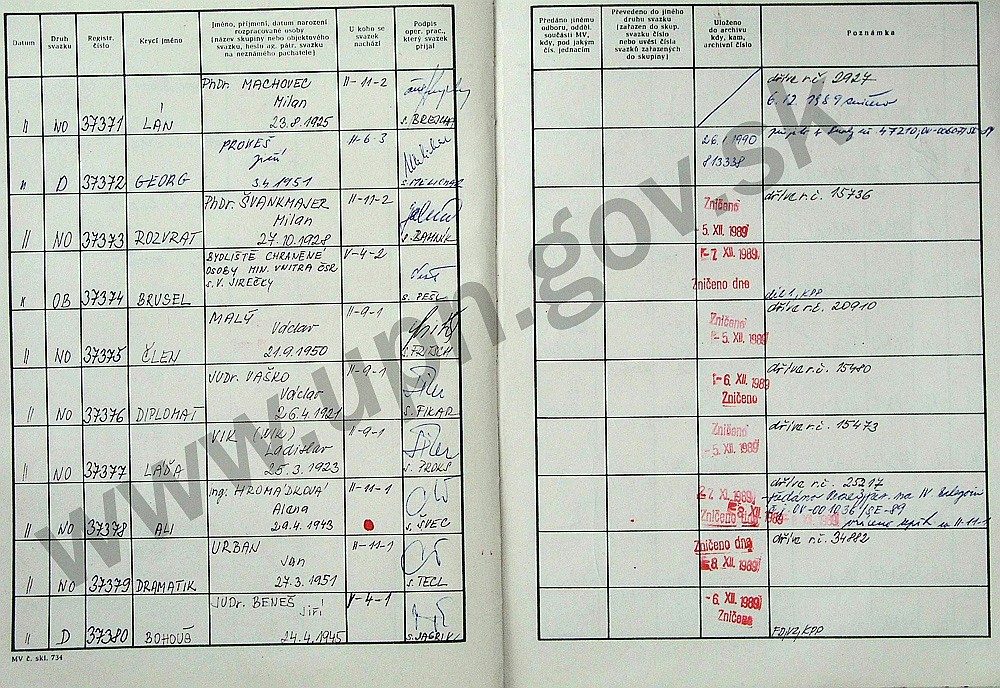 Datum
Druh svazku
Registr. číslo
Krycí jméno
Jméno, příjmení, datum narození
rozpracované osoby
(název skupiny nebo objektového
svazku, heslo ag. pátr. svazku
na neznámého pachatele)
U koho se svazek nachází
Podpis oper. prac., který svazek přijal
Předáno jinému odboru, odděl. součásti MV, kdy, pod jakým čís. jednacím
Převedeno do jiného druhu svazku (zařazen do skup. svazku číslo nebo uvést čísla svazků zařazených do skupiny)
Uloženo do archivu kdy, kam, archivní číslo
Poznámka
PhDr. MACHOVEC II-11-2 dříve r.č. 2927
Milan 6.12. 1989
II NO 37371 LÁN 23.8.1925 s. BREJCHA
PROKEŠ II-6-3 26.1.1990
Jiří 813338
II D 37372 GEORG 3.4.1951 s. MELICHAR
PhDr. ŠVANKMAJER II-11-2 dříve r.č. 15736
Milan Zničeno
II NO 37373 ROZVRAT 27.10.1928 s. BAHNÍK 5. XII. 1989
BYDLIŠTĚ CHRÁNĚNÉ V-4-2 -7. XII. 1989
OSOBY MIN. VNITRA ČSR
s. V. JIREČKY Zničeno dne
II OB 37374 BRUSEL s. PEŠL díl 1, KPP
MALÝ II-9-1 dříve r.č. 20910
Václav Zničeno
II NO 37375 ČLEN 21.9.1950 s. FRITSCH -5. XII. 1989
JUDr. VAŠKO II-9-1 dříve r.č. 15480
Václav -6. XII. 1989
II NO 37376 DIPLOMAT 26.4.1921 s. FIKAR Zničeno
VIK (NIK) II-9-1 dříve r.č. 15473
Ladislav Zničeno
II NO 37377 LAĎA 25.3.1923 s. PROKS -5. XII. 1989
ing. HROMÁDKOVÁ II-11-1 dříve r.č. 25217
Alena 27. XI. 1989
II NO 37378 ALI 29.4.1943 s. ŠVEC Zničeno dne
URBAN II-11-1 Zničeno dne dříve r.č. 34882
Jan -8. XII. 1989
II NO 37379 DRAMATIK 27.3.1951 s. TECL
JUDr. BENEŠ V-4-1 -6. XII. 1989
Jiří Zničeno
II D 37380 BOHOUŠ 24.4.1945
MV č. skl. 734
www.upn.gov.sk